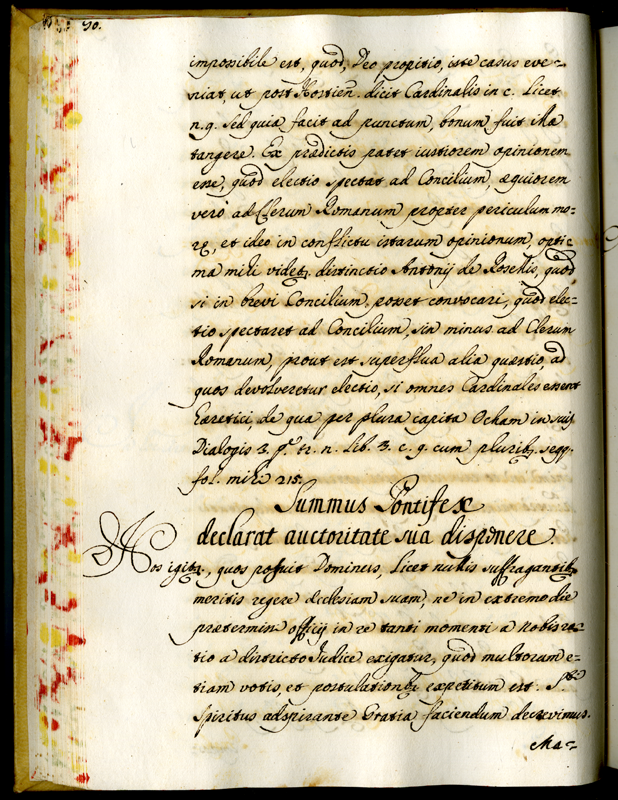 70.
impossibile est, quod, Deo propitio, iste casus eve-
niat, ut post Hostien. dicit Cardinalis in c. Licet
n. 9. sed quia facit ad punctum, bonum fuit Me
tangere. Ex prædictis patet iustiorem opinionem
esse, quod electio spectat ad Concilium, æquiorem
vero ad Clerum Romanum propter periculum mo-
re, et ideo in conflictu istarum opinionum, opti-
ma mihi videtr. distinctio Antonij de Rosellis, quod
si in brevi Concilium, posset convocari, quod elec-
tio spectaret ad Concilium, sin minus ad Clerum
Romanum, prout est superflua alia quæstio, ad
quos devolveretur electio, si omnes Cardinales essent
hæretici, de qua per plura capita Ocham in suis
Dialogis 3. p. tr. n. Lib. 3. c. 9. cum plurib. seqq.
fol. mihi 215.
Summus Pontifex
declarat auctoritate sua disponere.
Nos igitr., quos posuit Dominus, Licet nullis suffragantib.
meritis regere Ecclesiam suam, ne in extremo die
prætermin officij in re tanti momenti a nobis ra-
tio a districto Judice exigatur, quod multorum e-
tiam votis, et postulationib. expetitum est. S.to
Spiritus adspirante Gratia faciendum decrevimus.
Ma-